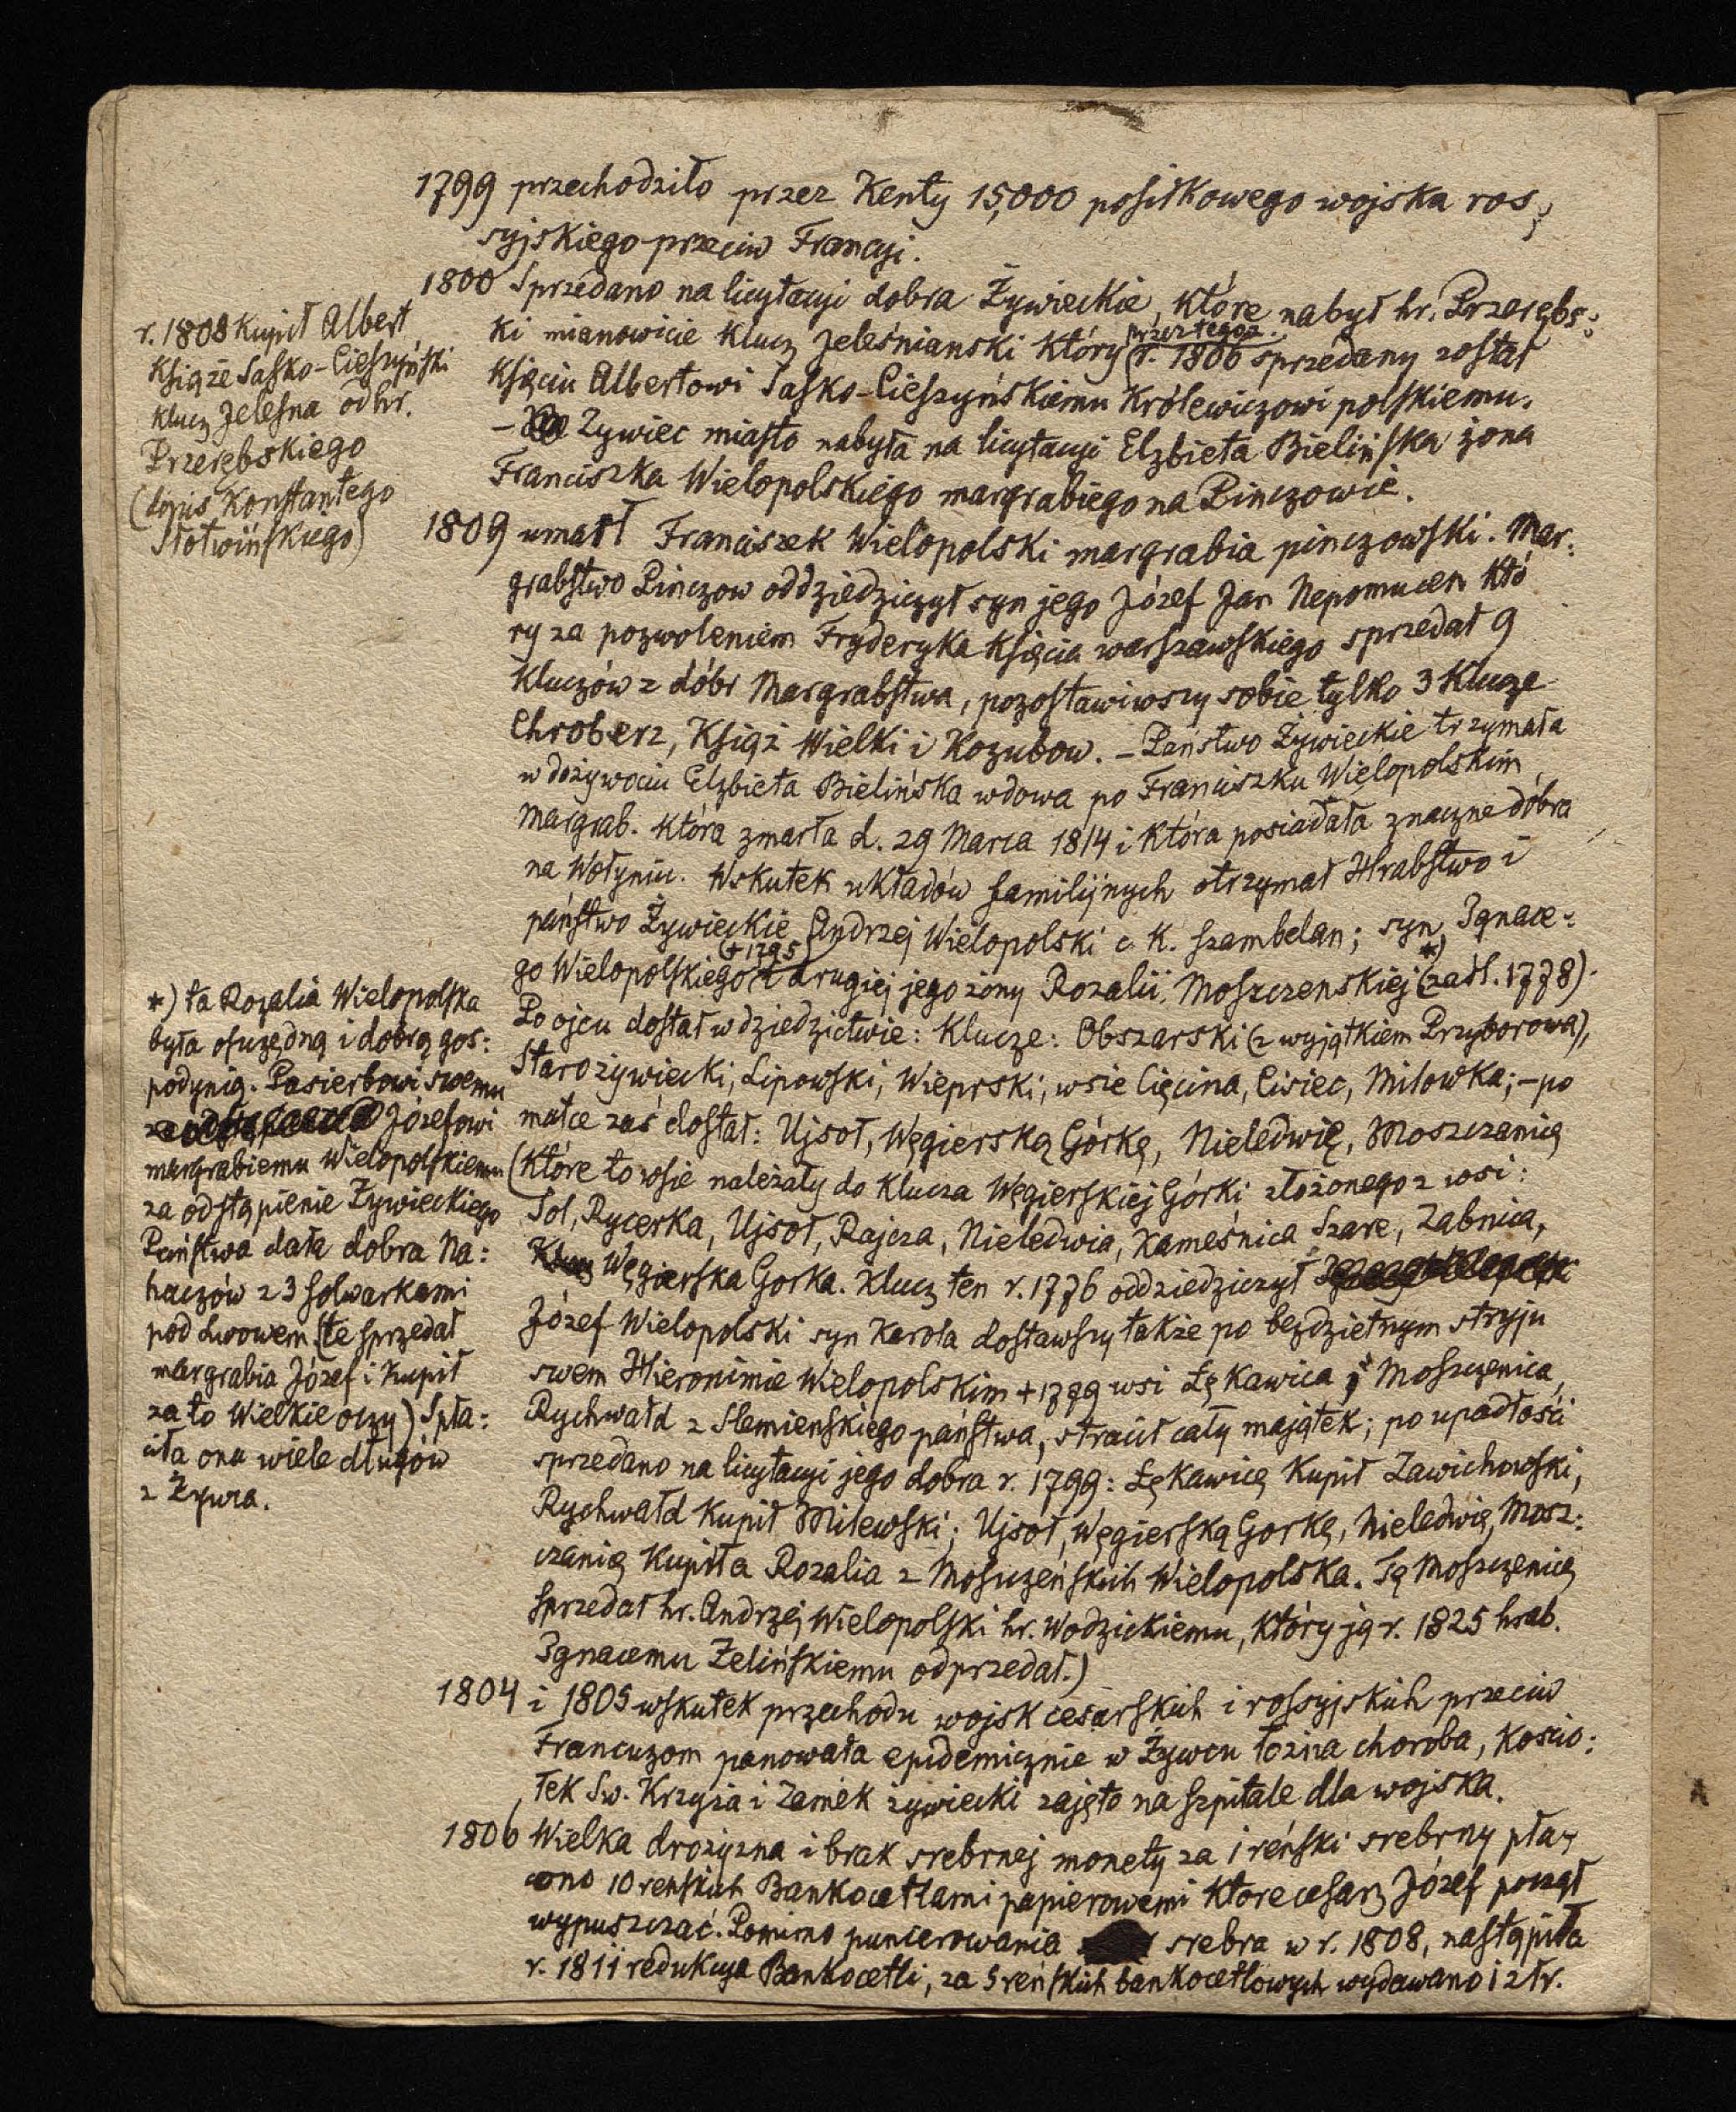 1799 przechodziło przez Kenty 15,000 posiłkowego wojska ros:
syjskiego przeciw Francyi.
1800 Sprzedano na licytacyi dobra Żywieckie, które nabył hr. Przerębs:
ki mianowicie klucz Jeleśnianski który (przez tegoż r. 1806 sprzedany został
Księciu Albertowi Sasko-Cieszyńskiemu Królewiczowi polskiemu.
– Żywiec miasto nabyła na licytacyi Elzbieta Bielińska żona
Franciszka Wielopolskiego margrabiego na Pinczowie.
r. 1808 kupił Albert
Książe Sasko-Cieszyński
klucz Jelesna od hr.
Przerębskiego
(dopis Konstantego
Słotwińskiego)
1809 umarł Franciszek Wielopolski margrabia pinczowski. Mar:
grabstwo Pinczow oddziedziczył syn jego Józef Jan Nepomucen któ
ry za pozwoleniem Fryderyka Księcia warszawskiego sprzedał 9
Kluczów z dóbr Margrabstwa, pozostawiwszy sobie tylko 3 Klucze
Chroberz, Książ Wielki i Kozubow. – Państwo Żywieckie trzymała
w dożywociu Elzbieta Bielińska wdowa po Franciszku Wielopolskim
margrab. która zmarła d. 29 Marca 1814 i która posiadała znaczne dobra
na Wołyniu. Wskutek układów familijnych otrzymał Hrabstwo i
państwo Żywieckie Andrzej Wielopolski c. K. szambelan; syn Ignace:
go Wielopolskiego (+1795) i drugiej jego żony Rozalii Moszczenskiej *) (zaśl. 1778).
Po ojcu dostał w dziedzictwie: Klucze: Obszarski (z wyjątkiem Przyborowa),
Starożywiecki, Lipowski, Wieprski; wsie Cięcina, Cisiec, Milowka; – po
matce zaś dostał: Ujsoł, Węgierską Górkę, Nieledwię, Moszczanicę
(które to wsie należały do klucza Węgierskiej Górki złożonego z wsi:
Sol, Rycerka, Ujsoł, Rajcza, Nieledwia, Kameśnica Szare, Zabnica,
Węgierska Gorka. Klucz ten r. 1776 oddziedziczył
Józef Wielopolski syn Karola dostawszy także po bezdzietnym stryju
swem Hieronimie Wielopolskim +1779 wsi Łękawica i Moszczenica,
Rychwałd z Slemienskiego państwa, stracił cały majątek; po upadłości
sprzedano na licytacyi jego dobra r. 1799: Łękawicę Kupił Zawichowski,
Rychwałd Kupił Milewski; Ujsoł, Węgierską Gorkę, Nieledwię, Mosz:
czanię Kupiła Rozalia z Moszczeńskich Wielopolska. Tę Moszczenicę
sprzedał hr. Andrzej Wielopolski hr. Wodzickiemu, który ją r. 1825 hrab.
Ignacemu Żelińskiemu odprzedał.)
*) ta Rozalia Wielopolska
była osczędną i dobrą gos:
podynią. Pasierbowi swemu
Józefowi
margrabiemu Wielopolskiemu
za odstąpienie Żywieckiego
Państwa dała dobra Na:
haczów z 3 folwarkami
pod Lwowem (te sprzedał
margrabia Józef i kupił
za to Wielkie oczy) Spła:
ciła ona wiele długów
z Żywca.
1804 i 1805 wskutek przechodu wojsk cesarskich i rossyjskich przeciw
Francuzom panowała epidemicznie w Żywcu łożna choroba, Kościo:
łek Św. Krzyża i Zamek żywiecki zajęto na szpitale dla wojska.
1806 Wielka drożyzna i brak srebrnej monety za 1 reński srebrny pła:
cono 10 reńskich Bankocetlami papierowemi które cesarz Józef począł
wypuszczać. Pomimo puncerowania srebra w r. 1808, nastąpiła
r. 1811 redukcya Bankocetli, za 5 reńskich bankocetlowych wydawano 1 złr.